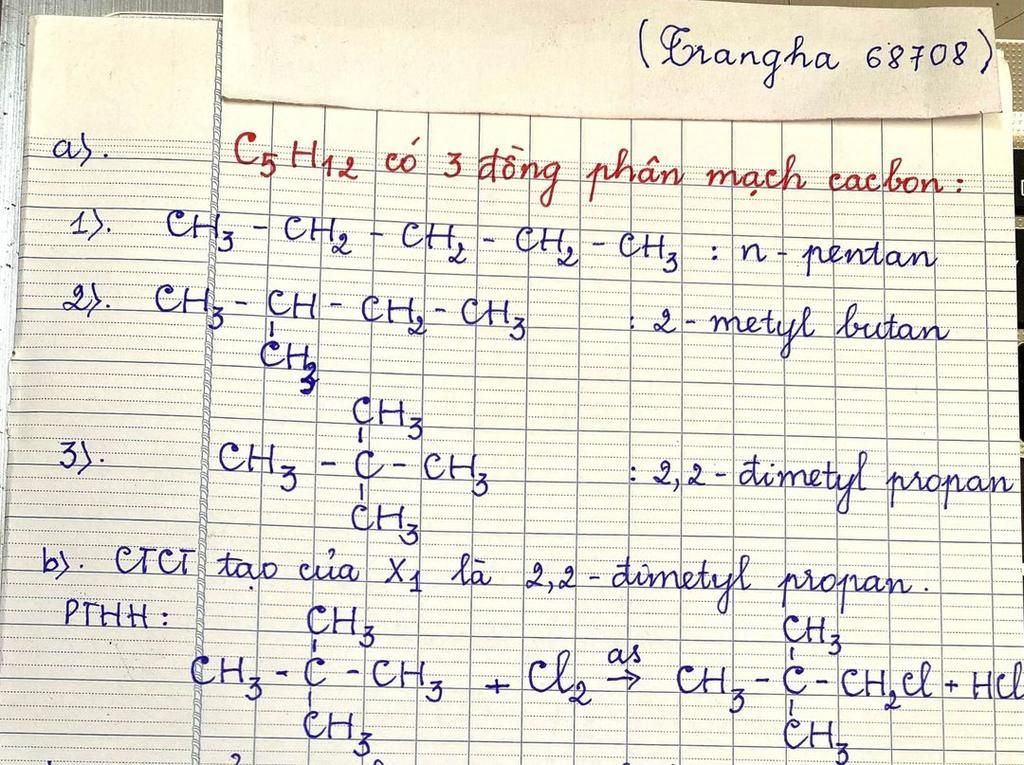 (Trangha 68708)
a). C5H12 có 3 đồng phân mạch cacbon:
1). CH3 - CH2 - CH2 - CH2 - CH3 : n - pentan
2). CH3 - CH - CH2 - CH3 : 2 - metyl butan
CH3
CH3
3). CH3 - C - CH3 : 2,2 - đimetyl propan
CH3
b). CTCT tạo của X1 là 2,2 - đimetyl propan.
PTHH: CH3 CH3
CH3 - C - CH3 + Cl2 as→ CH3 - C - CH2Cl + HCl
CH3 CH3